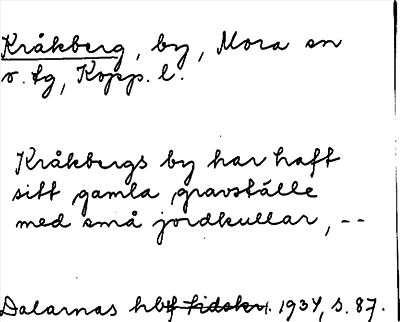 Kråkberg, by, Mora sn
v. tg, Kopp. l.
Kråkbergs by har haft
sitt gamla gravställe
med små jordkullar, --
Dalarnas hbf tidskr. 1934, s. 87.